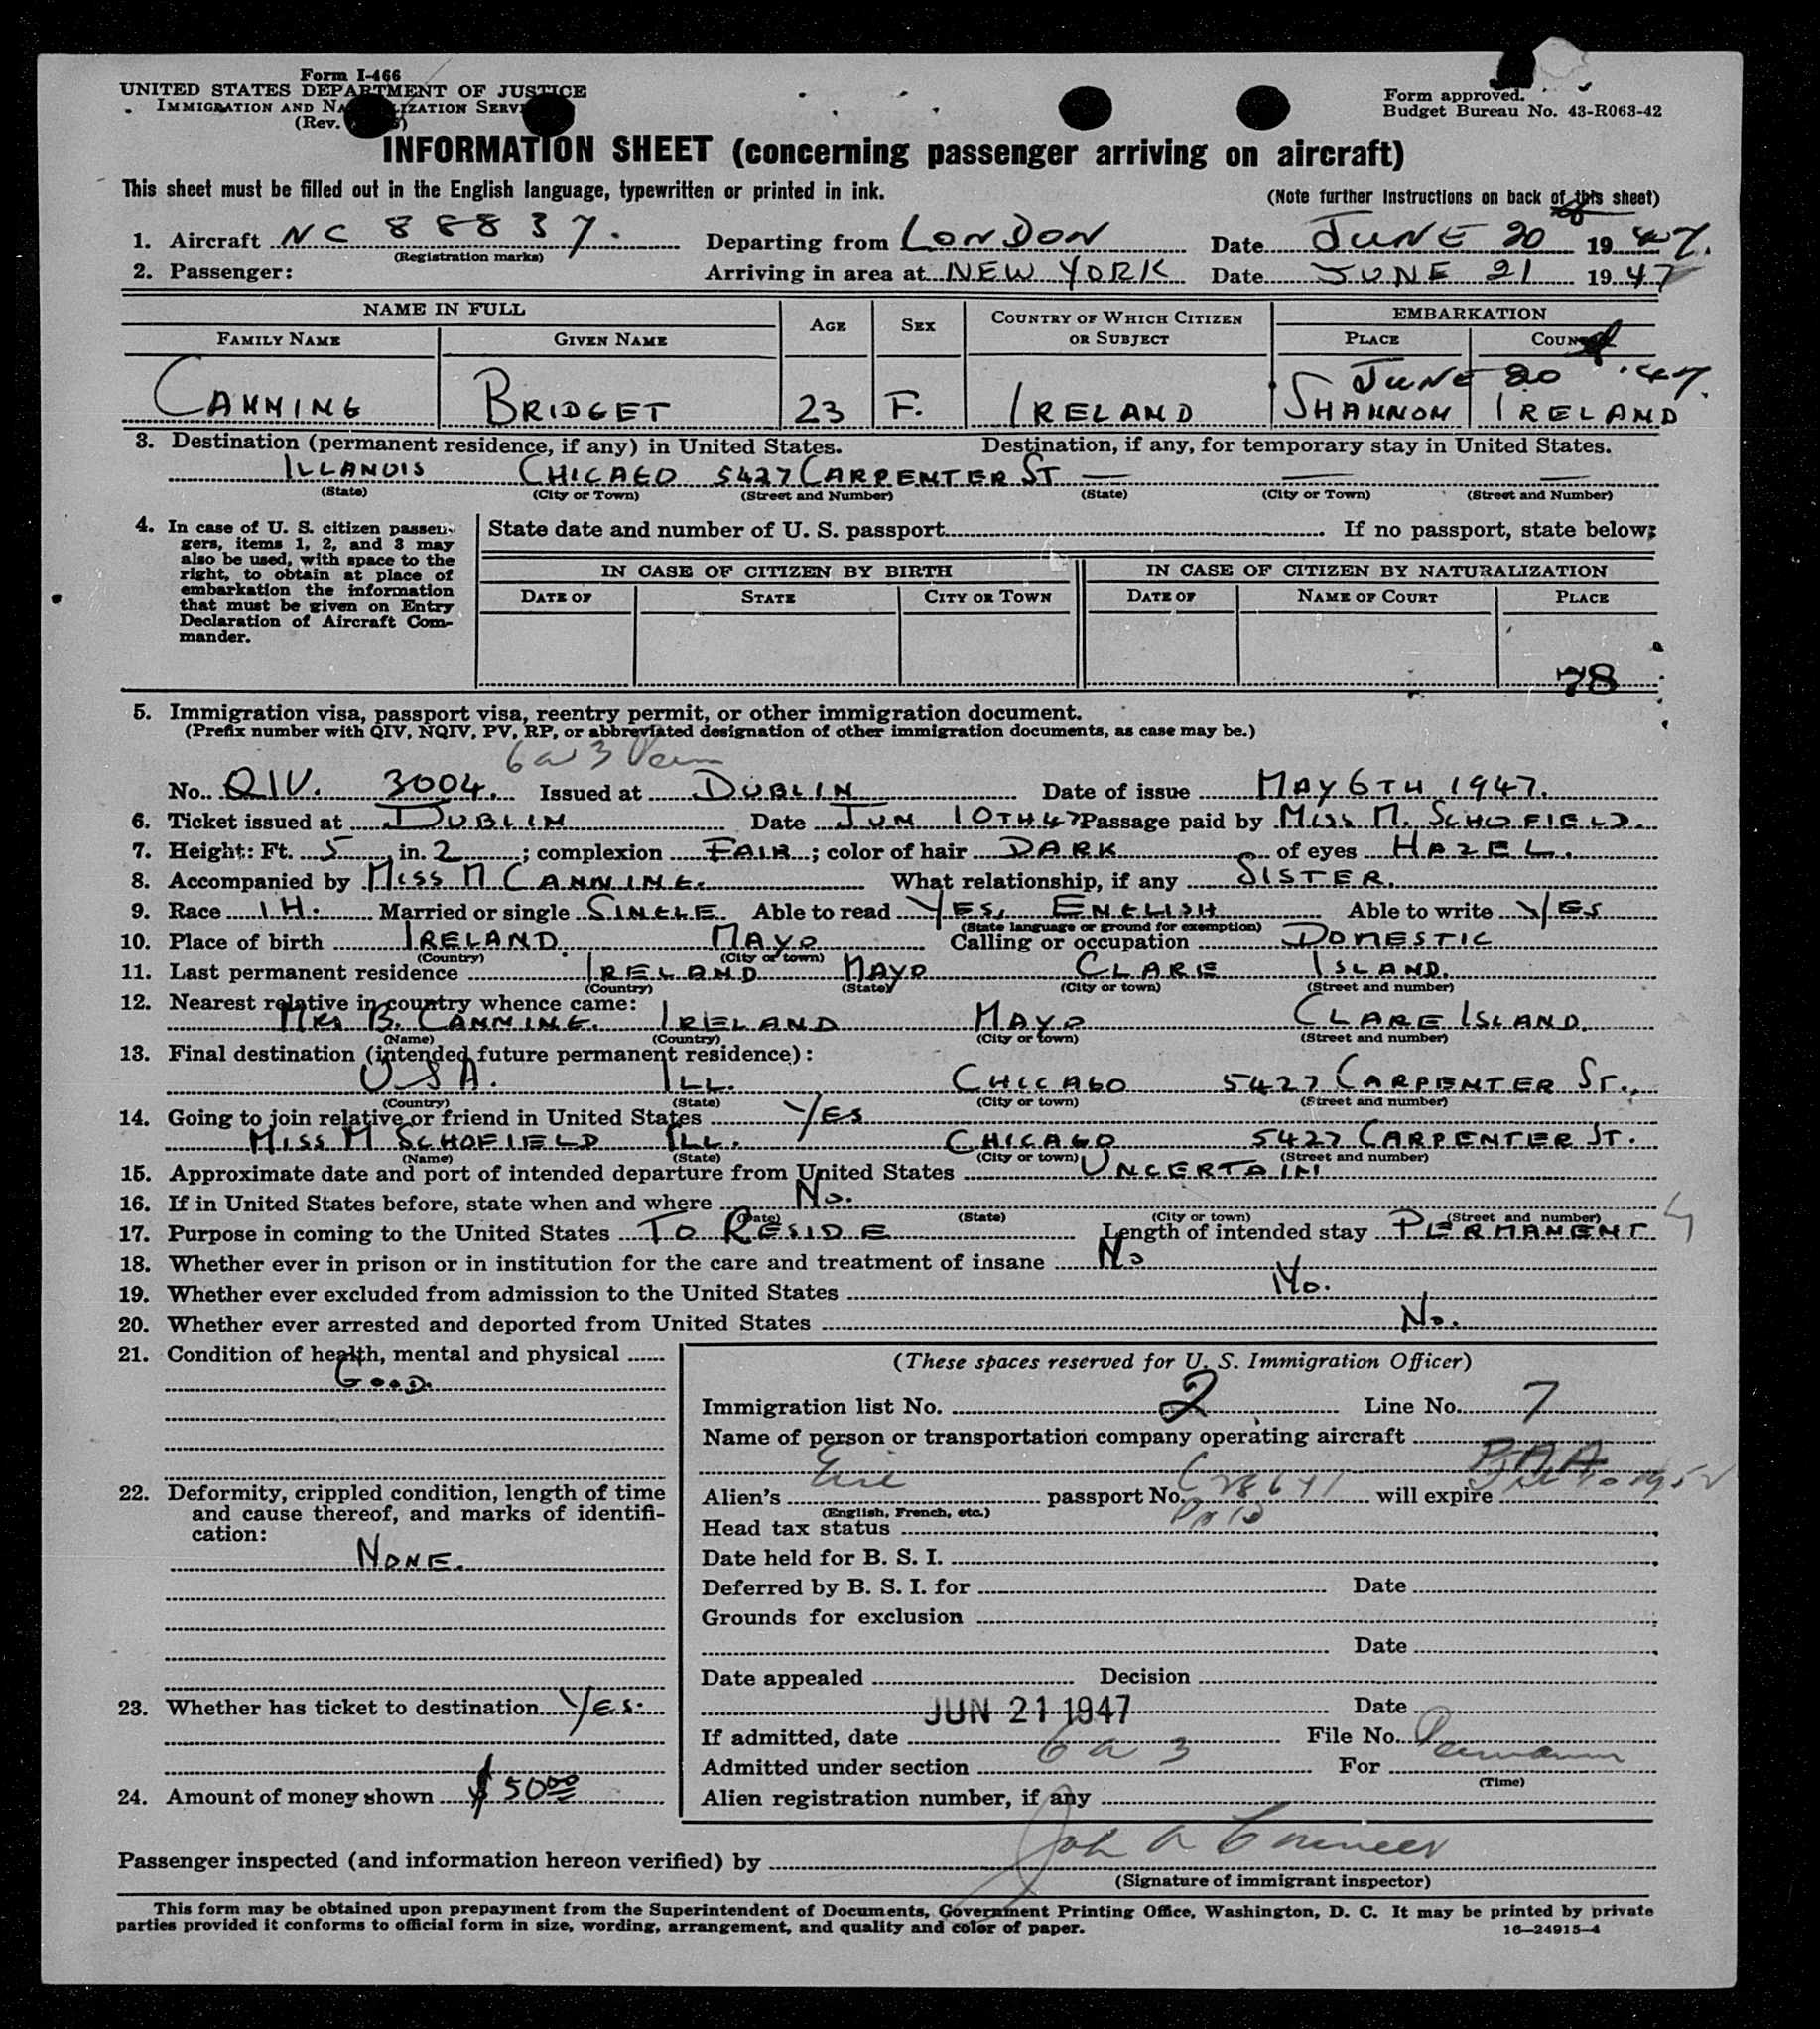 Form I-466
UNITED STATES DEPARTMENT OF JUSTICE
IMMIGRATION AND NATURALIZATION SERVICE
(Rev.
Form approved.
Budget Bureau No. 43-R063-42
INFORMATION SHEET (concerning passenger arriving on aircraft)
This sheet must be filled out in the English language, typewritten or printed in ink. (Note further instructions on back of this sheet)
1. Aircraft NC 88837. Departing from LONDON Date JUNE 20 1947.
(Registration marks)
2. Passenger: Arriving in area at NEW YORK Date JUNE 21 1947
NAME IN FULL AGE SEX COUNTRY OF WHICH CITIZEN OR SUBJECT EMBARKATION
FAMILY NAME GIVEN NAME PLACE COUNTRY
JUNE 20 '47.
CANNING BRIDGET 23 F. IRELAND SHANNON IRELAND
3. Destination (permanent residence, if any) in United States. Destination, if any, for temporary stay in United States.
ILLANOIS CHICAGO 5427 CARPENTER ST — — —
(State) (City or Town) (Street and Number) (State) (City or Town) (Street and Number)
4. In case of U. S. citizen passengers, items 1, 2, and 3 may also be used, with space to the right, to obtain at place of embarkation the information that must be given on Entry Declaration of Aircraft Commander.
State date and number of U. S. passport If no passport, state below:
IN CASE OF CITIZEN BY BIRTH IN CASE OF CITIZEN BY NATURALIZATION
DATE OF STATE CITY OR TOWN DATE OF NAME OF COURT PLACE
78
5. Immigration visa, passport visa, reentry permit, or other immigration document.
(Prefix number with QIV, NQIV, PV, RP, or abbreviated designation of other immigration documents, as case may be.)
6 a 3 Perm
No. QIV. 3004. Issued at DUBLIN Date of issue MAY 6TH 1947.
6. Ticket issued at DUBLIN Date JUN 10TH 47 Passage paid by MISS M. SCHOFIELD.
7. Height: Ft. 5 in. 2; complexion FAIR; color of hair DARK of eyes HAZEL.
8. Accompanied by MISS M CANNING. What relationship, if any SISTER.
9. Race IH. Married or single SINGLE Able to read YES, ENGLISH Able to write YES
(State language or ground for exemption)
10. Place of birth IRELAND. MAYO Calling or occupation DOMESTIC
(Country) (City or town)
11. Last permanent residence IRELAND MAYO CLARE ISLAND.
(Country) (State) (City or town) (Street and number)
12. Nearest relative in country whence came:
MRS B. CANNING. IRELAND MAYO CLARE ISLAND.
(Name) (Country) (City or town) (Street and number)
13. Final destination (intended future permanent residence):
USA. ILL. CHICAGO 5427 CARPENTER ST.,
(Country) (State) (City or town) (Street and number)
14. Going to join relative or friend in United States YES
MISS M SCHOFIELD ILL. CHICAGO 5427 CARPENTER ST.
(Name) (State) (City or town) (Street and number)
15. Approximate date and port of intended departure from United States UNCERTAIN
16. If in United States before, state when and where NO.
(Date) (State) (City or town) (Street and number)
17. Purpose in coming to the United States TO RESIDE Length of intended stay PERMANENT
18. Whether ever in prison or in institution for the care and treatment of insane NO
19. Whether ever excluded from admission to the United States NO.
20. Whether ever arrested and deported from United States NO.
21. Condition of health, mental and physical
GOOD.
22. Deformity, crippled condition, length of time and cause thereof, and marks of identification:
NONE.
23. Whether has ticket to destination YES.
24. Amount of money shown $ 50.00
(These spaces reserved for U. S. Immigration Officer)
Immigration list No. 2 Line No. 7
Name of person or transportation company operating aircraft
PAA
Alien's Eire passport No. C 28641 will expire
(English, French, etc.)
Head tax status Paid
Date held for B. S. I.
Deferred by B. S. I. for Date
Grounds for exclusion
Date
Date appealed Decision
Date
If admitted, date JUN 21 1947 File No.
Admitted under section 6 a 3 For
(Time)
Alien registration number, if any
Passenger inspected (and information hereon verified) by
(Signature of immigrant inspector)
This form may be obtained upon prepayment from the Superintendent of Documents, Government Printing Office, Washington, D. C. It may be printed by private
parties provided it conforms to official form in size, wording, arrangement, and quality and color of paper. 16—24915-4